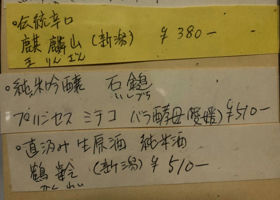 ◦伝統辛口
麒麟山(新潟) ¥380-
きりんざん
◦純米吟醸 石鎚
いしづち
プリンセスミチコ バラ酵母(愛媛)¥510-
◦直汲み生原酒 純米酒
鶴齢(新潟) ¥510-
かくれい